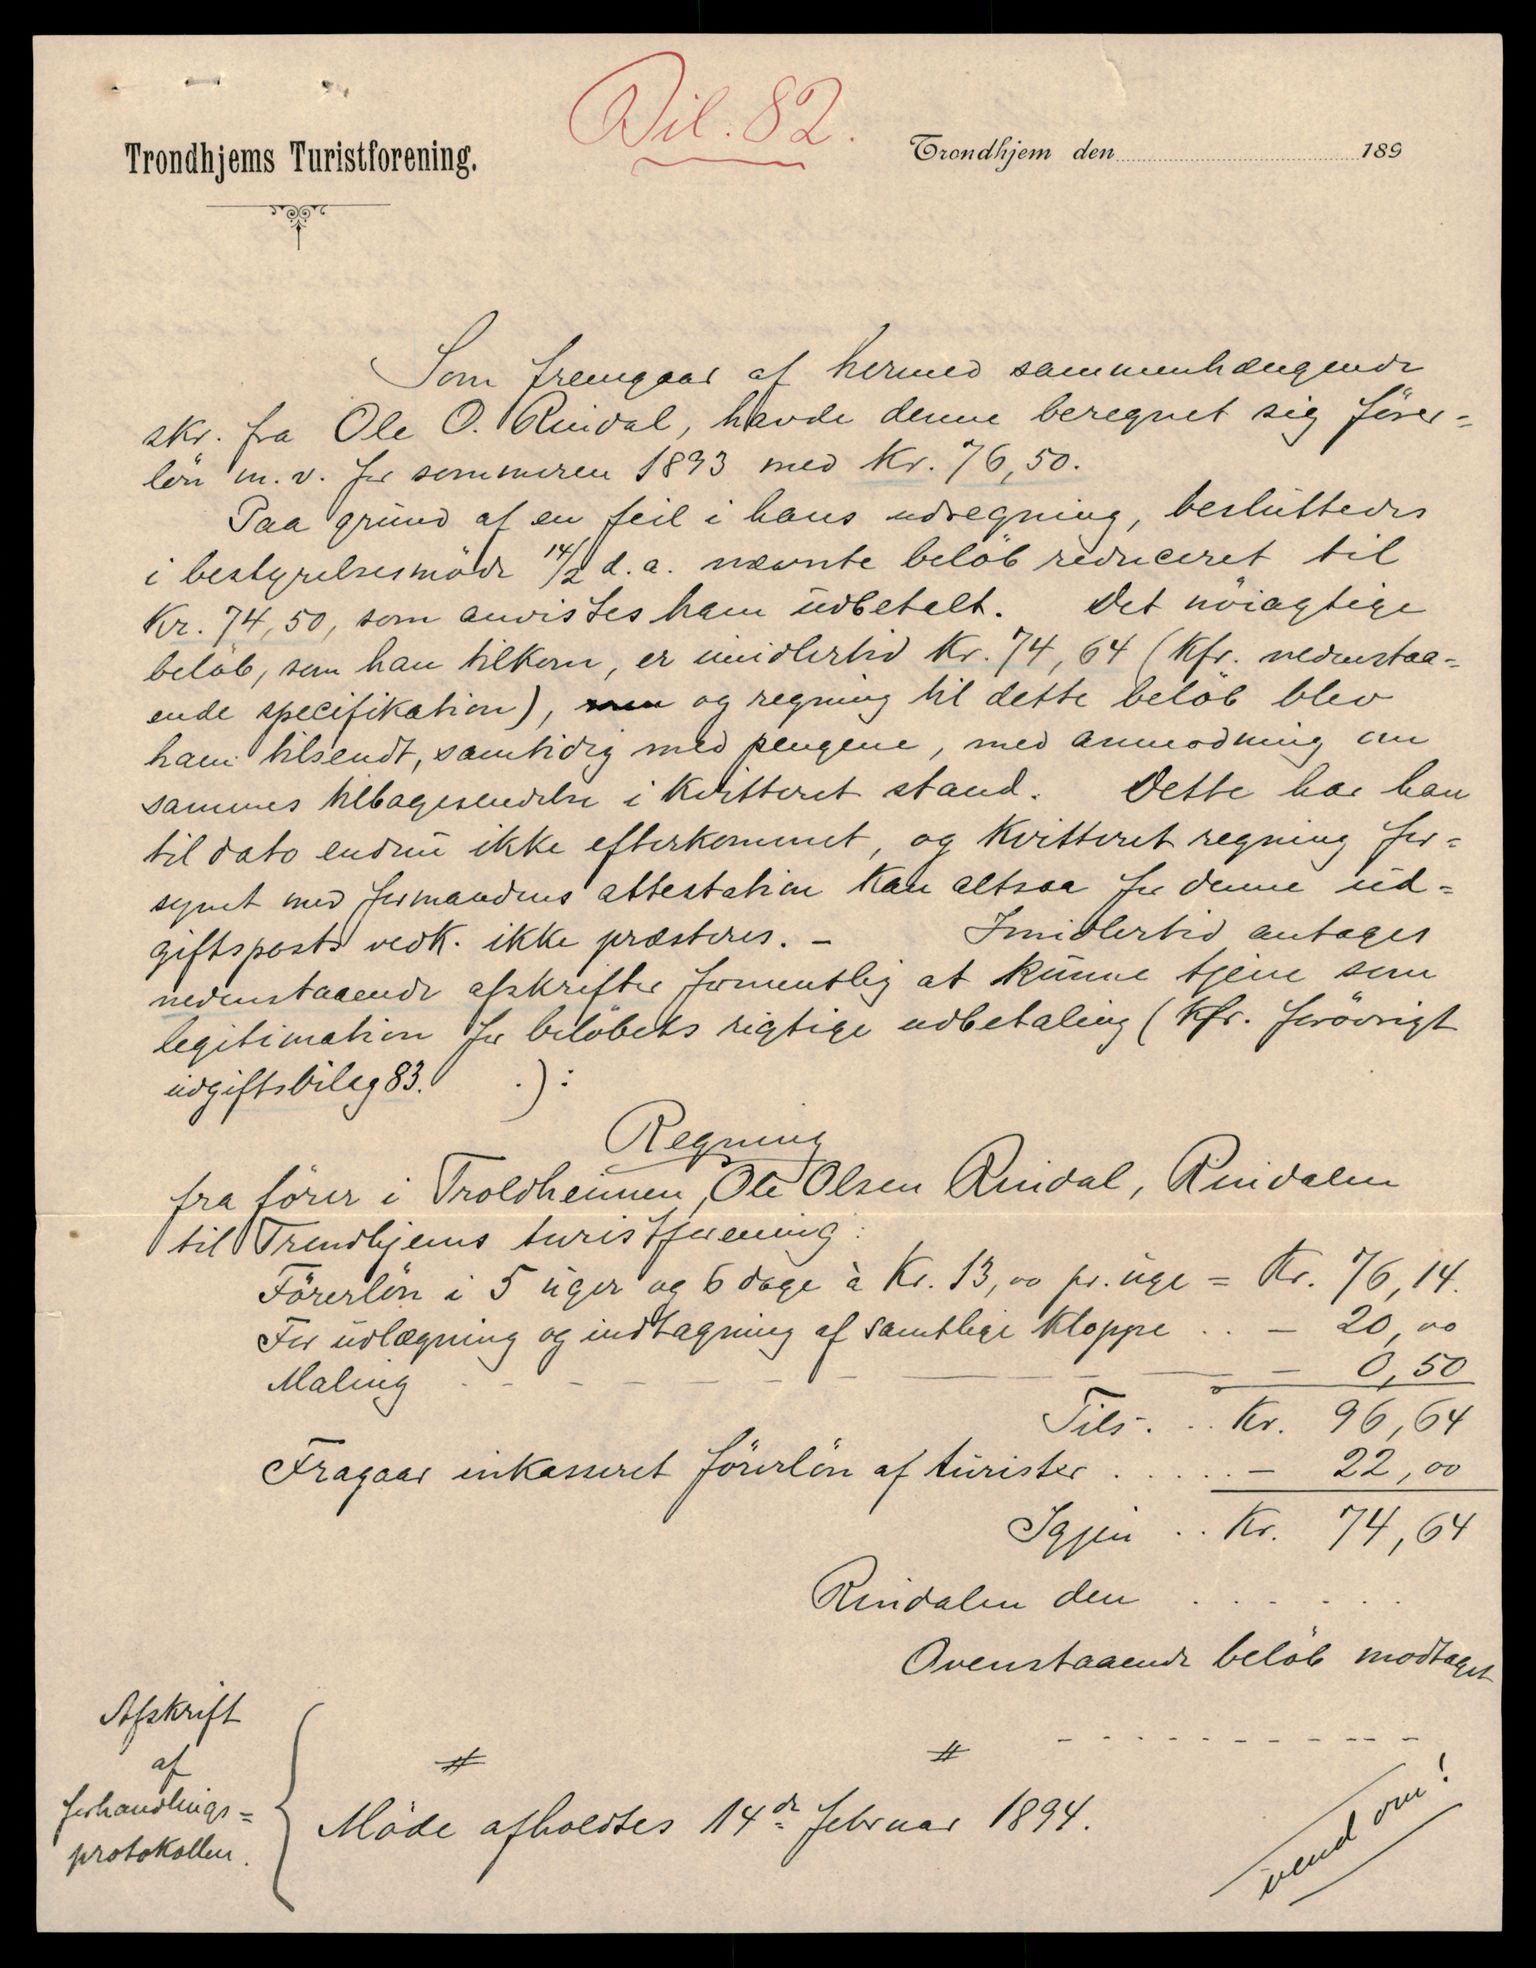 Bil. 82.
Trondhjems Turistforening.
Trondhjem den 189
Som fremgaar af hermed sammenhængende
skr. fra Ole O. Rindal, havde denne beregnet sig förer=
lön m.v. for sommeren 1893 med Kr. 76,50.
Paa grund af en feil i hans udregning, besluttedes
i bestyrelsesmöde 14/2 d. a. nævnte belöb reduceret til
Kr. 74,50, som anvistes ham udbetalt. Det nöiagtige
belöb, som han tilkom, er imidlertid Kr. 74,64 (Kfr. nedenstaa=
ende specifikation), og regning til dette belöb blev
ham tilsendt, samtidig med pengene, med anmodning om
sammes tilbagesendelse i kvitteret stand. Dette har han
til dato endnu ikke efterkommet, og kvitteret regning for=
synet med formandens attestation kan altsaa for denne ud=
giftsposts vedk. ikke præsteres. – Imidlertid antages
nedenstaaende afskrifter formentlig at kunne tjene som
legitimation for belöbets rigtige udbetaling (Kfr. forövrigt
udgiftsbilag 83. .):
Regning
fra förer i Troldheimen, Ole Olsen Rindal, Rindalen
til Trondhjems turistforening:
Förerlön i 5 uger og 6 dage à Kr. 13,00 pr. uge = Kr. 76,14.
For udlægning og indtagning af samtlige kloppe . . – 20,00
Maling – – – – – – 0,50
Tils. . . Kr. 96,64
Fragaar inkasseret förerlön af turister . . . . . – 22,00
Igjen . . Kr. 74,64
Rindalen den . . . . . .
Ovenstaaende belöb modtaget
– – – – – – – – – – –
Afskrift
af
forhandlings=
protokollen.
Möde afholdtes 14de februar 1894.
vend om!